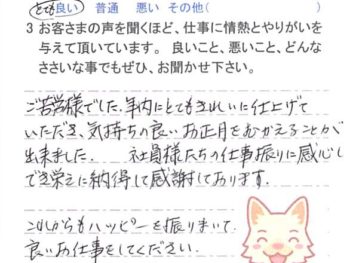 とても良い　普通　悪い　その他(　　　　　)
3 お客さまの声を聞くほど、仕事に情熱とやりがいを
与えて頂いています。良いこと、悪いこと、どんな
ささいな事でもぜひ、お聞かせ下さい。
ご苦労様でした。年内にとてもきれいに仕上げて
いただき、気持ちの良いお正月をむかえることが
出来ました。　社員様たちの仕事振りに感心し
でき栄えに納得して感謝しております。
これからもハッピーを振りまいて
良いお仕事をしてください。